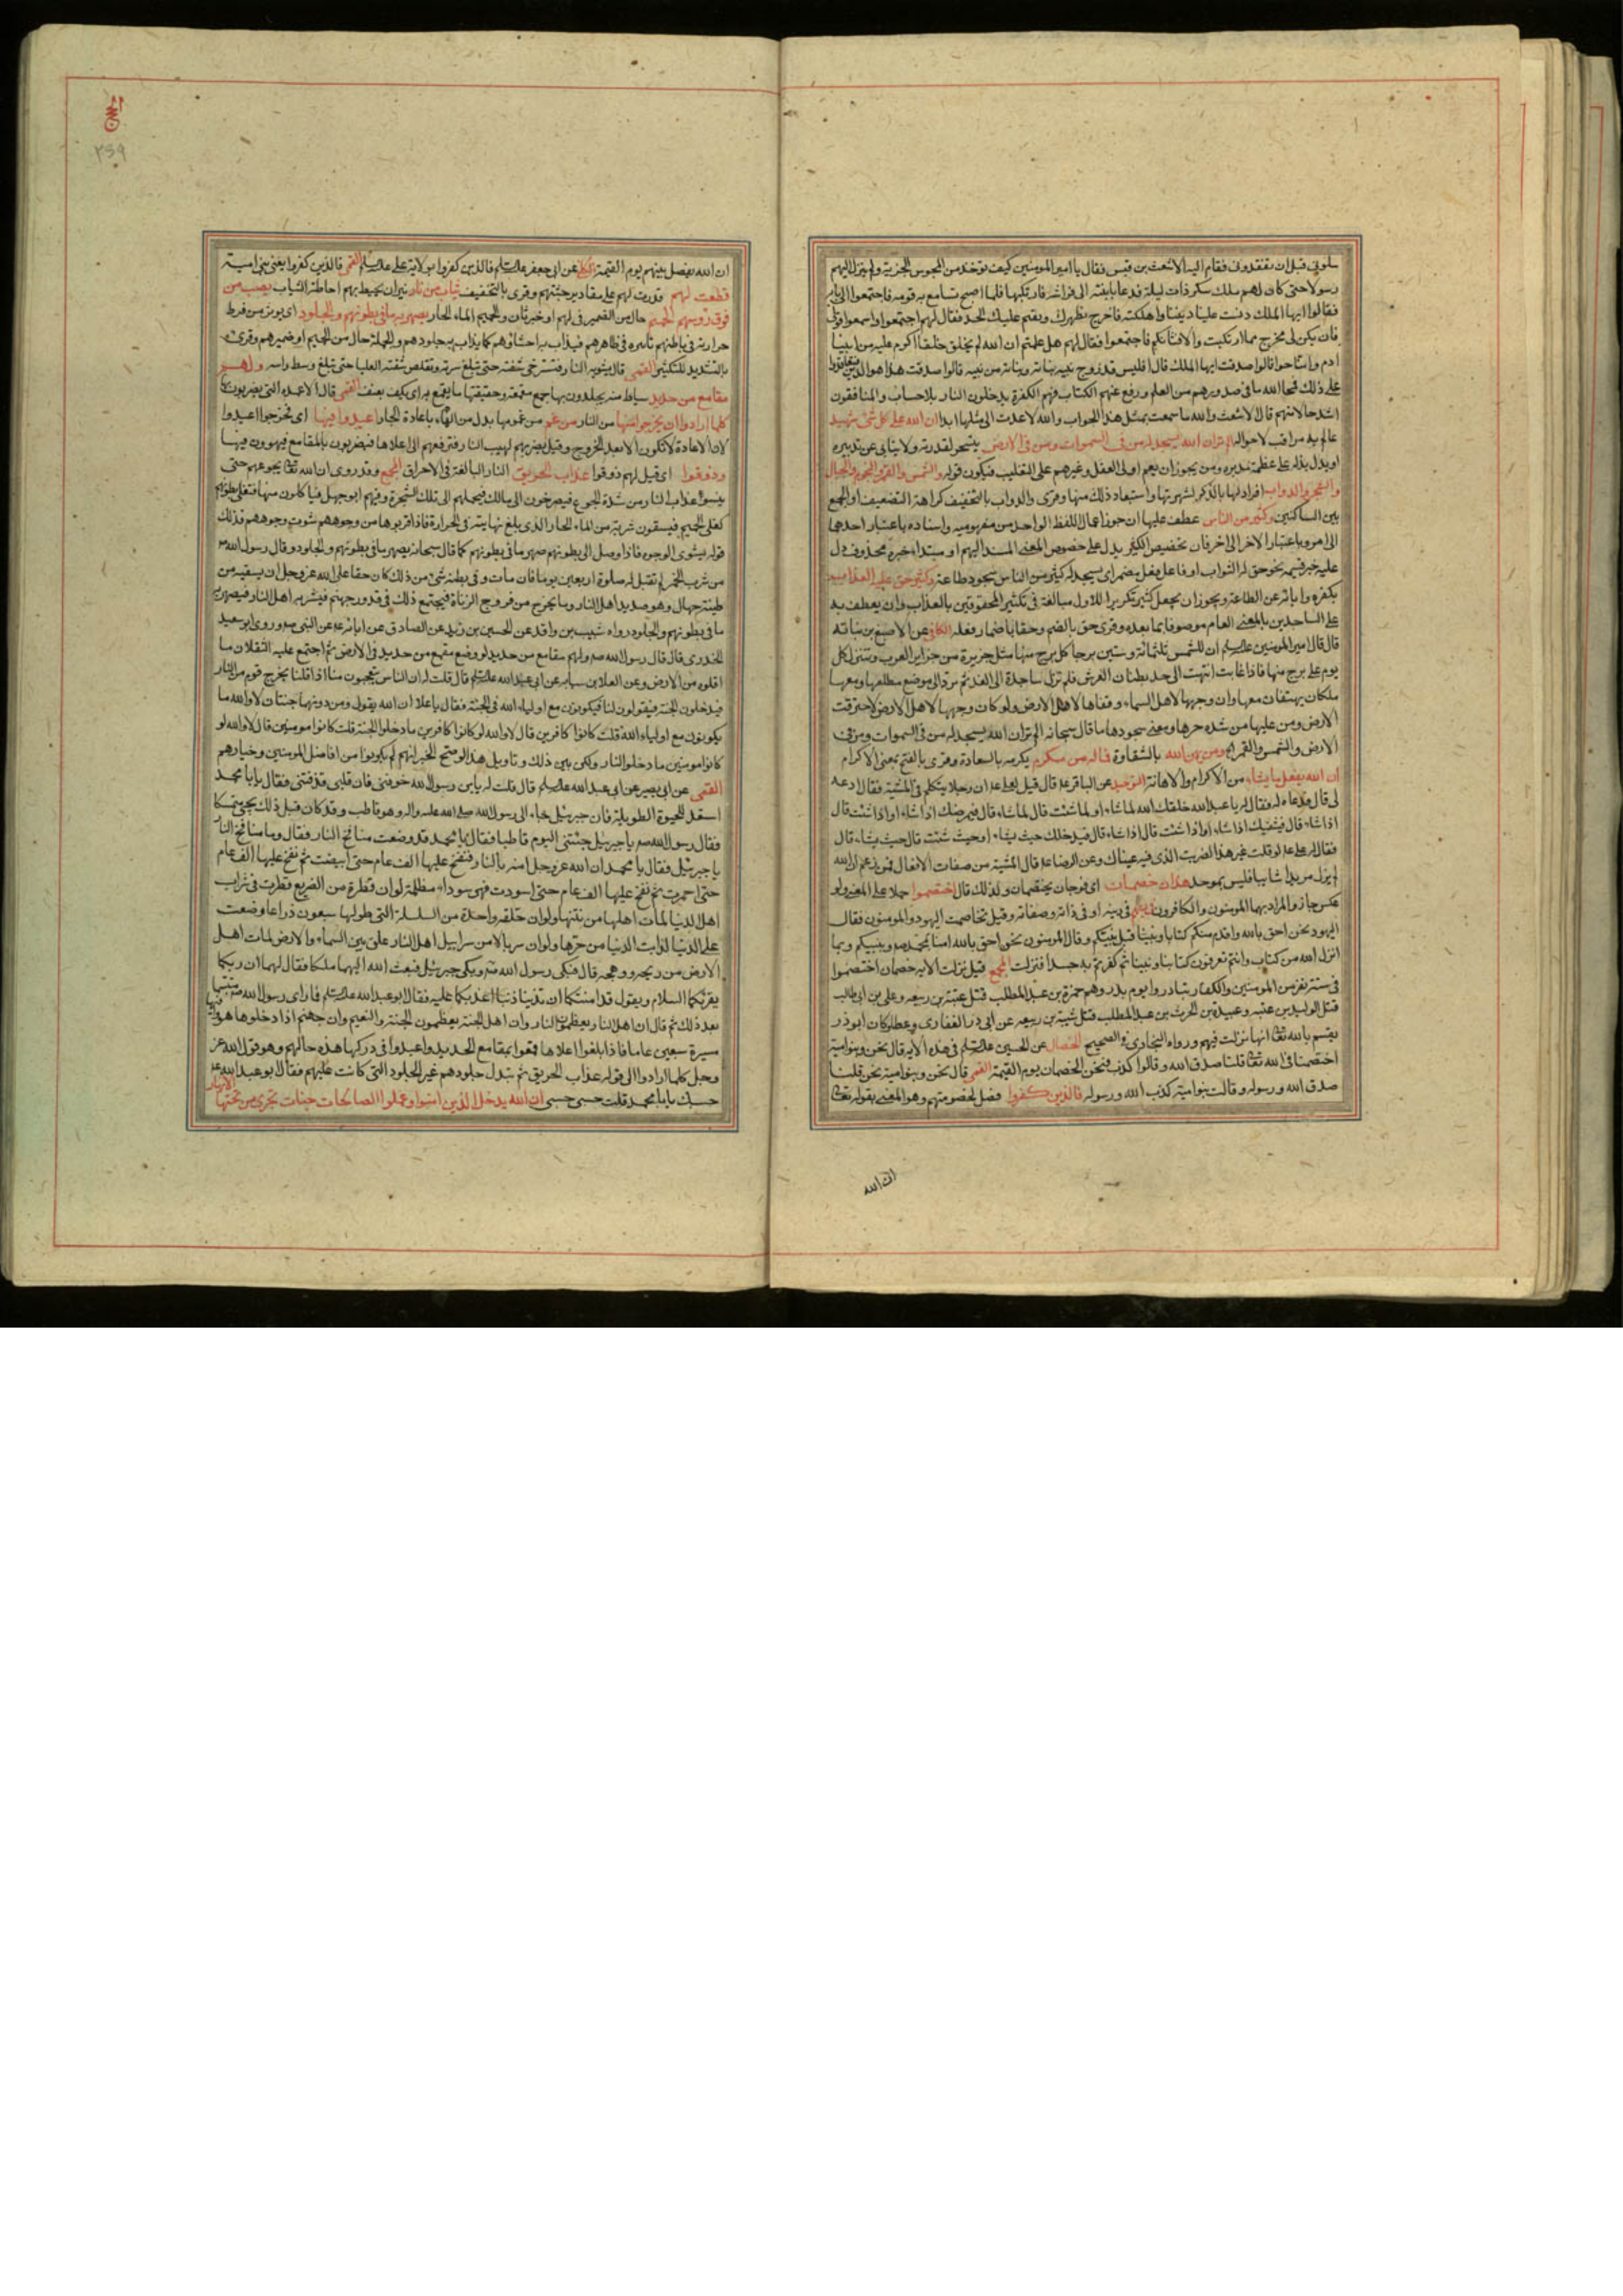 سلونى قبل ان تفقدونى فقام اليه الاشعث بن قيس فقال يا امير المومنين كيف توخذ من المجوس الجزية ولم ينزل اليهم
رسولا حتى كان لهم ملك سكر ذات ليلة فدعا بابنته الى فراشه فارتكبها فلما اصبح تسامع به قومه فاجتمعوا الى بابه
فقالوا ايها الملك دنست علينا ديننا واهلكته فاخرج نطهرك ونقم عليك الحد فقال لهم اجتمعوا واسمعوا قولى
فان يكن لى مخرج مما ارتكبت والا فشأنكم فاجتمعوا فقال لهم هل علمتم ان الله لم يخلق خلقا اكرم عليه من ابينا
ادم وامنا حوا قالوا صدقت ايها الملك قال افليس قد زوج بنيه بناته وبناته من بنيه قالوا صدقت هذا هو الدين فتعاقدوا
على ذلك فمحا الله ما فى صدورهم من العلم ورفع عنهم الكتاب فهم الكفرة يدخلون النار بلا حساب والمنافقون
اشد حالا منهم قال الاشعث والله ما سمعت بمثل هذا الجواب والله لا عدت الى مثلها ابدا ان الله على كل شئ شهيد
عالم به مراقب لاحواله الم تر ان الله يسجد له من فى السموات ومن فى الارض يتسخر لقدرته ولا يتابى عن تدبيره
او يدل بذله على عظمة مدبره ومن يجوز ان يعم اولى العقل وغيرهم على التغليب فيكون قوله والشمس والقمر والنجوم والجبال
والشجر والدواب افرادا لها بالذكر لشهرتها واستبعاد ذلك منها وقرئ والدواب بالتخفيف كراهة التضعيف او الجمع
بين الساكنين وكثير من الناس عطف عليها ان جوز اعمال اللفظ الواحد من مفهوميه واسناده باعتبار احدهما
الى امر وباعتبار الاخر الى اخر فان تخصيص الكثير يدل على خصوص المعنى المسند اليهم او مبتدا خبره محذوف دل
عليه خبر قسيمه نحو حق له الثواب او فاعل فعل مضمر اى يسجد له كثير من الناس سجود طاعة وكثير حق عليه العذاب
بكفره وابائه عن الطاعة ويجوز ان يجعل كثير تكريرا للاول مبالغة فى تكثير المحقوقين بالعذاب وان يعطف به
على الساجدين بالمعنى العام موصوفا بما بعده وقرئ حق بالضم وحقا باضمار فعله الكافى عن الاصبغ بن نباته
قال قال امير المومنين علیه السلم ان للشمس ثلثمائة وستين برجا كل برج منها مثل جزيرة من جزاير العرب وتنزل كل
يوم على برج منها فاذا غابت انتهت الى حد بطنان العرش فلم تزل ساجدة الى الغد ثم ترد الى موضع مطلعها ومعها
ملكان يهتفان معها وان وجهها لاهل السماء وقفاها لاهل الارض ولو كان وجهها لاهل الارض لاحترقت
الارض ومن عليها من شدة حرها ومعنى سجودها ما قال سبحانه الم تر ان الله يسجد له من فى السموات ومن فى
الارض والشمس والقمر الخ ومن يهن الله بالشقاوة فما له من مكرم يكرمه بالسعادة وقرئ بالفتح بمعنى الاكرام
ان الله يفعل ما يشاء من الاكرام والاهانة التوحيد عن الباقر ع قال قيل لعلى ع ان رجلا يتكلم فى المشية فقال ادعه
لى قال فدعاه له فقال له يا عبد الله خلقك الله لما شاء او لما شئت قال لما شاء قال فيمرضك اذا شاء او اذا شئت قال
اذا شاء قال فيشفيك اذا شاء او اذا شئت قال اذا شاء قال فيدخلك حيث يشاء او حيث شئت قال حيث يشاء قال
فقال له على ع لو قلت غير هذا لضربت الذى فيه عيناك وعن الرضا ع قال المشية من صفات الافعال فمن زعم ان الله
لم يزل مريدا شائيا فليس بموحد هذان خصمان اى فوجان يختصمان ولذلك قال اختصموا حملا على المعنى ولو
عكس جاز والمراد بهما المومنون والكافرون فى ربهم فى دينه او فى ذاته وصفاته وقيل تخاصمت اليهود والمومنون فقال
اليهود نحن احق بالله واقدم منكم كتابا ونبينا قبل نبيكم وقال المومنون نحن احق بالله امنا بمحمد ص ونبيكم وبما
انزل الله من كتاب وانتم تعرفون كتابنا ونبينا ثم كفرتم به حسدا فنزلت المجمع قيل نزلت الايه خصمان اختصموا
فى ستة نفر من المومنين والكفار تبادروا يوم بدر وهم حمزة بن عبد المطلب قتل عتبة بن ربيعه وعلى بن ابى طالب
قتل الوليد بن عتبه وعبيدة بن الحرث بن عبد المطلب قتل شيبة بن ربيعه عن ابى ذر الغفارى وعطا وكان ابوذر
يقسم بالله تعالى انها نزلت فيهم ورواه البخارى فى الصحيح الخصال عن الحسين علیه السلم فى هذه الايه قال نحن وبنوامية
اختصمنا فى الله تعالى قلنا صدق الله وقالوا كذب فنحن الخصمان يوم القيمة القمى قال نحن وبنوامية نحن قلنا
صدق الله ورسوله وقالت بنوامية كذب الله ورسوله فالذين كفروا فصل لخصومتهم وهو المعنى بقوله تعالى
ان الله
٢٥٩
ان الله يفصل بينهم يوم القيمة الكافى عن ابى جعفر علیه السلم فالذين كفروا بولاية على علیه السلم القمى فالذين كفروا يعنى بنى امية
قطعت لهم قدرت لهم على مقادير جثتهم وقرئ بالتخفيف ثياب من نار نيران تحيط بهم احاطة الثياب يصب من
فوق رؤسهم الحميم حال من الضمير فى لهم او خبر ثان والحميم الماء الحار يصهر به ما فى بطونهم والجلود اى يوثر من فرط
حرارته فى باطنهم تأثيره فى ظاهرهم فيذاب به احشاؤهم كما يذاب به جلودهم والجملة حال من الحميم او ضميرهم وقرئ
بالتشديد للتكثير القمى قال تشويه النار فتسترخى شفته حتى تبلغ سرته وتقلص شفته العليا حتى تبلغ وسط راسه ولهم
مقامع من حديد سياط منه يجلدون بها جمع مقمعة وحقيقتها ما يقمع به اى يكف بعنف القمى قال الاعمدة التى يضربون بها
كلما ارادوا ان يخرجوا منها من النار من غم من غمومها بدل من الهاء باعادة الجار اعيدوا فيها اى فخرجوا اعيدوا
لان الاعادة لا تكون الا بعد الخروج وقيل يضربهم لهيب النار فترفعهم الى اعلاها فيضربون بالمقامع فيهوون فيها
وذوقوا اى قيل لهم ذوقوا عذاب الحريق النار البالغة فى الاحراق المجمع وقد روى ان الله تعالى يجوعهم حتى
ينسوا عذاب النار من شدة الجوع فيصرخون الى مالك فيحملهم الى تلك الشجرة وفيهم ابوجهل فياكلون منها فتغلى بطونهم
كغلى الحميم فيسقون شربة من الماء الحار الذى بلغ نهايته فى الحرارة فاذا قربوها من وجوههم شوت وجوههم فذلك
قوله يشوى الوجوه فاذا وصل الى بطونهم صهر ما فى بطونهم كما قال سبحانه يصهر ما فى بطونهم والجلود وقال رسول الله ص
من شرب الخمر لم تقبل له صلوة اربعين يوما فان مات وفى بطنه شئ من ذلك كان حقا على الله عزوجل ان يسقيه من
طينة خبال وهو صديد اهل النار وما يخرج من فروج الزناة فيجتمع ذلك فى قدور جهنم فيشربه اهل النار فيصهر به
ما فى بطونهم والجلود رواه شعيب بن واقد عن الحسين بن زيد عن الصادق عن ابائه ع عن النبى ص وروى ابو سعيد
الخدرى قال قال رسول الله ص ولهم مقامع من حديد لو وضع مقمع من حديد فى الارض ثم اجتمع عليه الثقلان ما
اقلوه من الارض وعن العلا بن سيابه عن ابى عبد الله علیه السلم قال قلت له ان الناس يتعجبون منا اذا قلنا يخرج قوم من النار
فيدخلون الجنة فيقولون لنا فيكونون مع اولياء الله فى الجنة فقال يا علا ان الله يقول ومن دونهما جنتان لا والله ما
يكونون مع اولياء الله قلت كانوا كافرين قال لا والله لو كانوا كافرين ما دخلوا الجنة قلت كانوا مومنين قال لا والله لو
كانوا مومنين ما دخلوا النار ولكن بين ذلك وتاويل هذا لو صح الخبر انهم لم يكونوا من افاضل المومنين وخيارهم
القمى عن ابى بصير عن ابى عبد الله علیه السلم قال قلت له يابن رسول الله خوفنى فان قلبى قد قسى فقال يابا محمد
استعد للحيوة الطويلة فان جبرئيل جاء الى رسول الله صلى الله عليه واله وهو قاطب وقد كان قبل ذلك يجئ متبسما
فقال رسول الله ص يا جبرئيل جئتنى اليوم قاطبا فقال يا محمد قد وضعت منافخ النار فقال وما منافخ النار
يا جبرئيل فقال يا محمد ان الله عزوجل امر بالنار فنفخ عليها الف عام حتى ابيضت ثم نفخ عليها الف عام
حتى احمرت ثم نفخ عليها الف عام حتى اسودت فهى سوداء مظلمة لو ان قطرة من الضريع قطرت فى شراب
اهل الدنيا لمات اهلها من نتنها ولو ان حلقة واحدة من السلسلة التى طولها سبعون ذراعا وضعت
على الدنيا لذابت الدنيا من حرها ولو ان سربالا من سرابيل اهل النار علق بين السماء والارض لمات اهل
الارض من ريحه ووهجه قال فبكى رسول الله ص وبكى جبرئيل فبعث الله اليهما ملكا فقال لهما ان ربكما
يقرئكما السلام ويقول قد امنتكما ان تذنبا ذنبا اعذبكما عليه فقال ابو عبد الله علیه السلم فما راى رسول الله ص متبسما
بعد ذلك ثم قال ان اهل النار يعظمون النار وان اهل الجنة يعظمون الجنة والنعيم وان جهنم اذا دخلوها هووا فيها
مسيرة سبعين عاما فاذا بلغوا اعلاها قمعوا بمقامع الحديد واعيدوا فى دركها هذه حالهم وهو قول الله عز
وجل كلما ارادوا الى قوله عذاب الحريق ثم تبدل جلودهم غير الجلود التى كانت عليهم فقال ابو عبد الله ع
حسبك يابا محمد قلت حسبى حسبى ان الله يدخل الذين امنوا وعملوا الصالحات جنات تجرى من تحتها الانهار